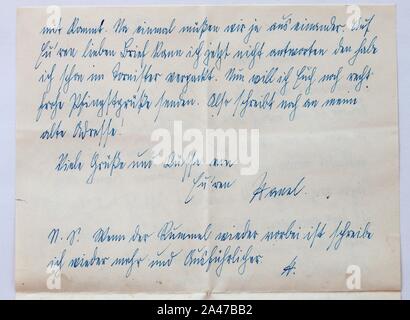 mit kommt. Na einmal müßen wir ja auseinander. Auf
Eu'ren lieben Brief kann ich jetzt nicht antworten den habe
ich schon im Tornister verpackt. Nun will ich Euch noch recht
frohe Pfingstgrüße senden. Also schreibt noch an meine
alte Adresse!
Viele Grüße und Küsse von
Eu'ren
N. S. Wenn der Rummel wieder vorbei ist schreibe
ich wieder mehr und Ausführlicher.
alamy
2A47BB2